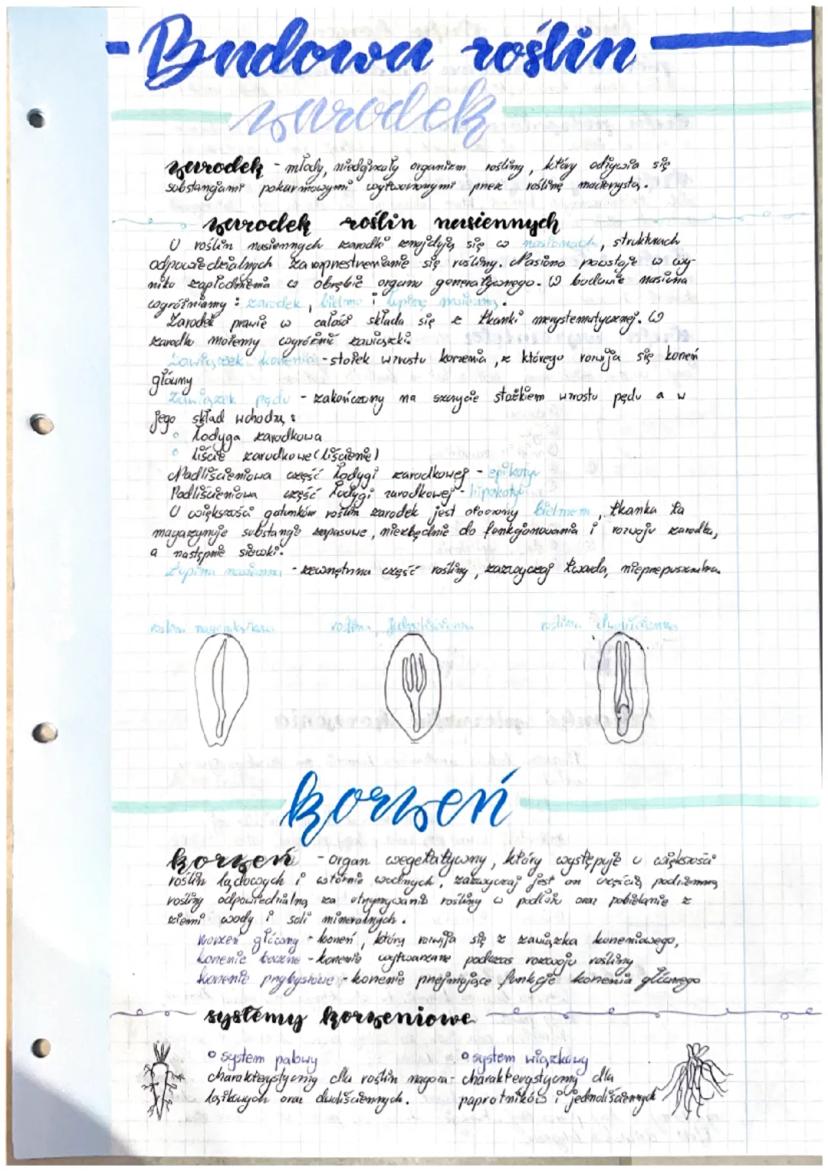 Budowa roślin
zarodek
zarodek - młody, niedojrzały organizm rośliny, który odżywia się
substancjami pokarmowymi wytworzonymi przez roślinę macierzystą.
zarodek roślin nasiennych
U roślin nasiennych zarodki znajdują się w nasionach, strukturach
odpowiedzialnych za rozprzestrzenianie się rośliny. Nasiono powstaje w wy-
niku zapłodnienia w obrębie organu generatywnego. W budowie nasiona
wyróżniamy: zarodek, bielmo i łupinę nasienną.
Zarodek prawie w całości składa się z tkanki merystematycznej. W
zarodku możemy wyróżnić zawiązki:
Zawiązek korzenia - stożek wzrostu korzenia, z którego rozwija się korzeń
główny
Zawiązek pędu - zakończony na szczycie stożkiem wzrostu pędu a w
jego skład wchodzą:
° łodyga zarodkowa
° liście zarodkowe (liścienie)
Nadliścieniowa część łodygi zarodkowej - epikotyl
Podliścieniowa część łodygi zarodkowej - hipokotyl
U większości gatunków roślin zarodek jest otoczony bielmem, tkanka ta
magazynuje substancje zapasowe, niezbędnie do funkcjonowania i rozwoju zarodka,
a następnie siewki.
Łupina nasienna - zewnętrzna część rośliny, zazwyczaj twarda, nieprzepuszczalna
roślina nagozalążkowa roślina jednoliścienna roślina dwuliścienna
korzeń
korzeń - organ wegetatywny, który występuje u większości
roślin lądowych i wtórnie wodnych, zazwyczaj jest on częścią podziemną
rośliny odpowiedzialną za utrzymywanie rośliny w podłożu oraz pobieranie z
ziemi wody i soli mineralnych.
korzeń główny - korzeń, który rozwija się z zawiązka korzeniowego,
korzenie boczne - korzenie wytwarzane podczas rozwoju rośliny
korzenie przybyszowe - korzenie przejmujące funkcję korzenia głównego
systemy korzeniowe
° system palowy
charakterystyczny dla roślin nagoza-
lążkowych oraz dwuliściennych.
° system wiązkowy
charakterystyczny dla
paprotników i jednoliściennych